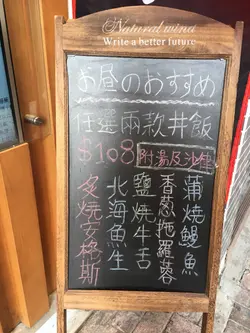 Natural wind
Write a better future
お昼のおすすめ
任選兩款丼飯
$108 附湯及沙律
蒲燒鰻魚
香蔥拖羅蓉
鹽燒牛舌
北海魚生
炙燒安格斯